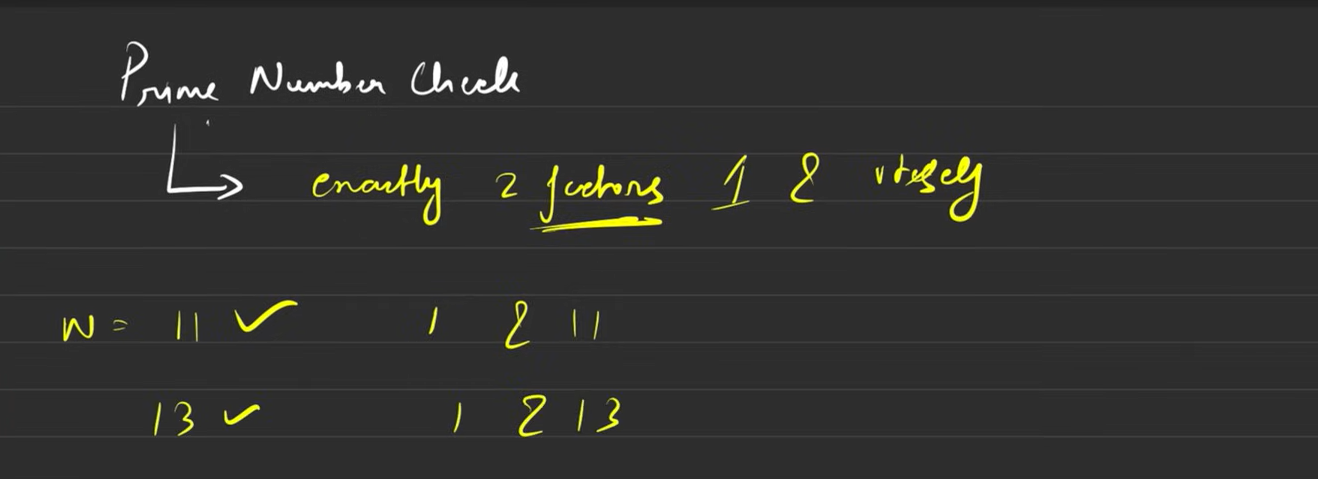 Prime Number Check
exactly 2 factors 1 & itself
N = 11 1 & 11
13 1 & 13